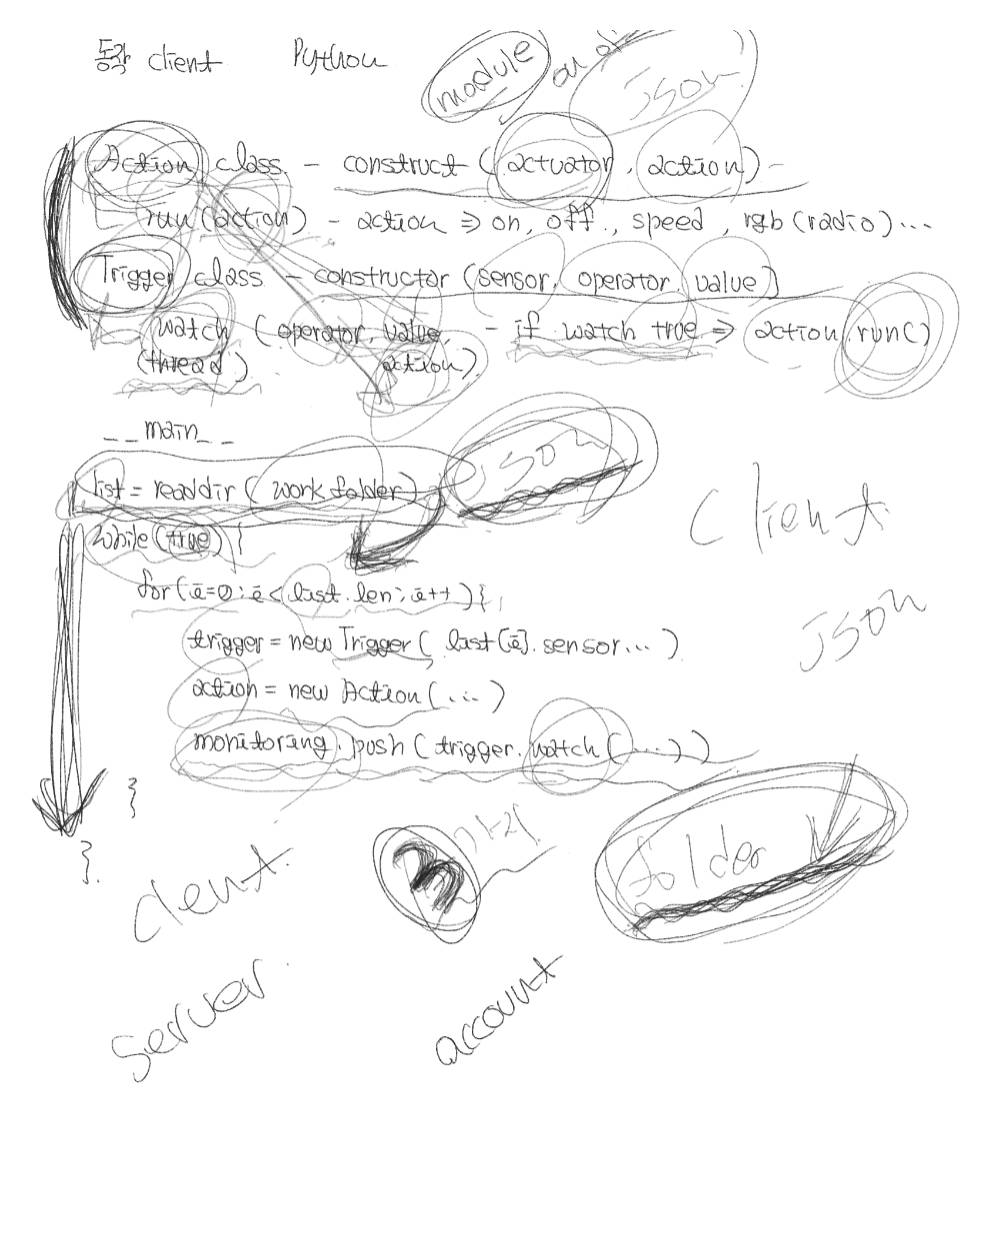 동작 client Python
module
on
Json
Action class - construct (actuator, action) -
run(action) - action ⇒ on, off, speed, rgb(radio)...
Trigger class - constructor (sensor, operator, value)
watch (operator, value, - if watch true ⇒ action run()
(thread) action)
__main__
list = readdir (work folder)
Json
while(true) {
Client
for(i=0; i<list.len; i++){
Json
trigger = new Trigger( list[i].sensor...)
action = new Action(...)
monitoring.push (trigger.watch(...))
}
}
folder
client.
server.
account